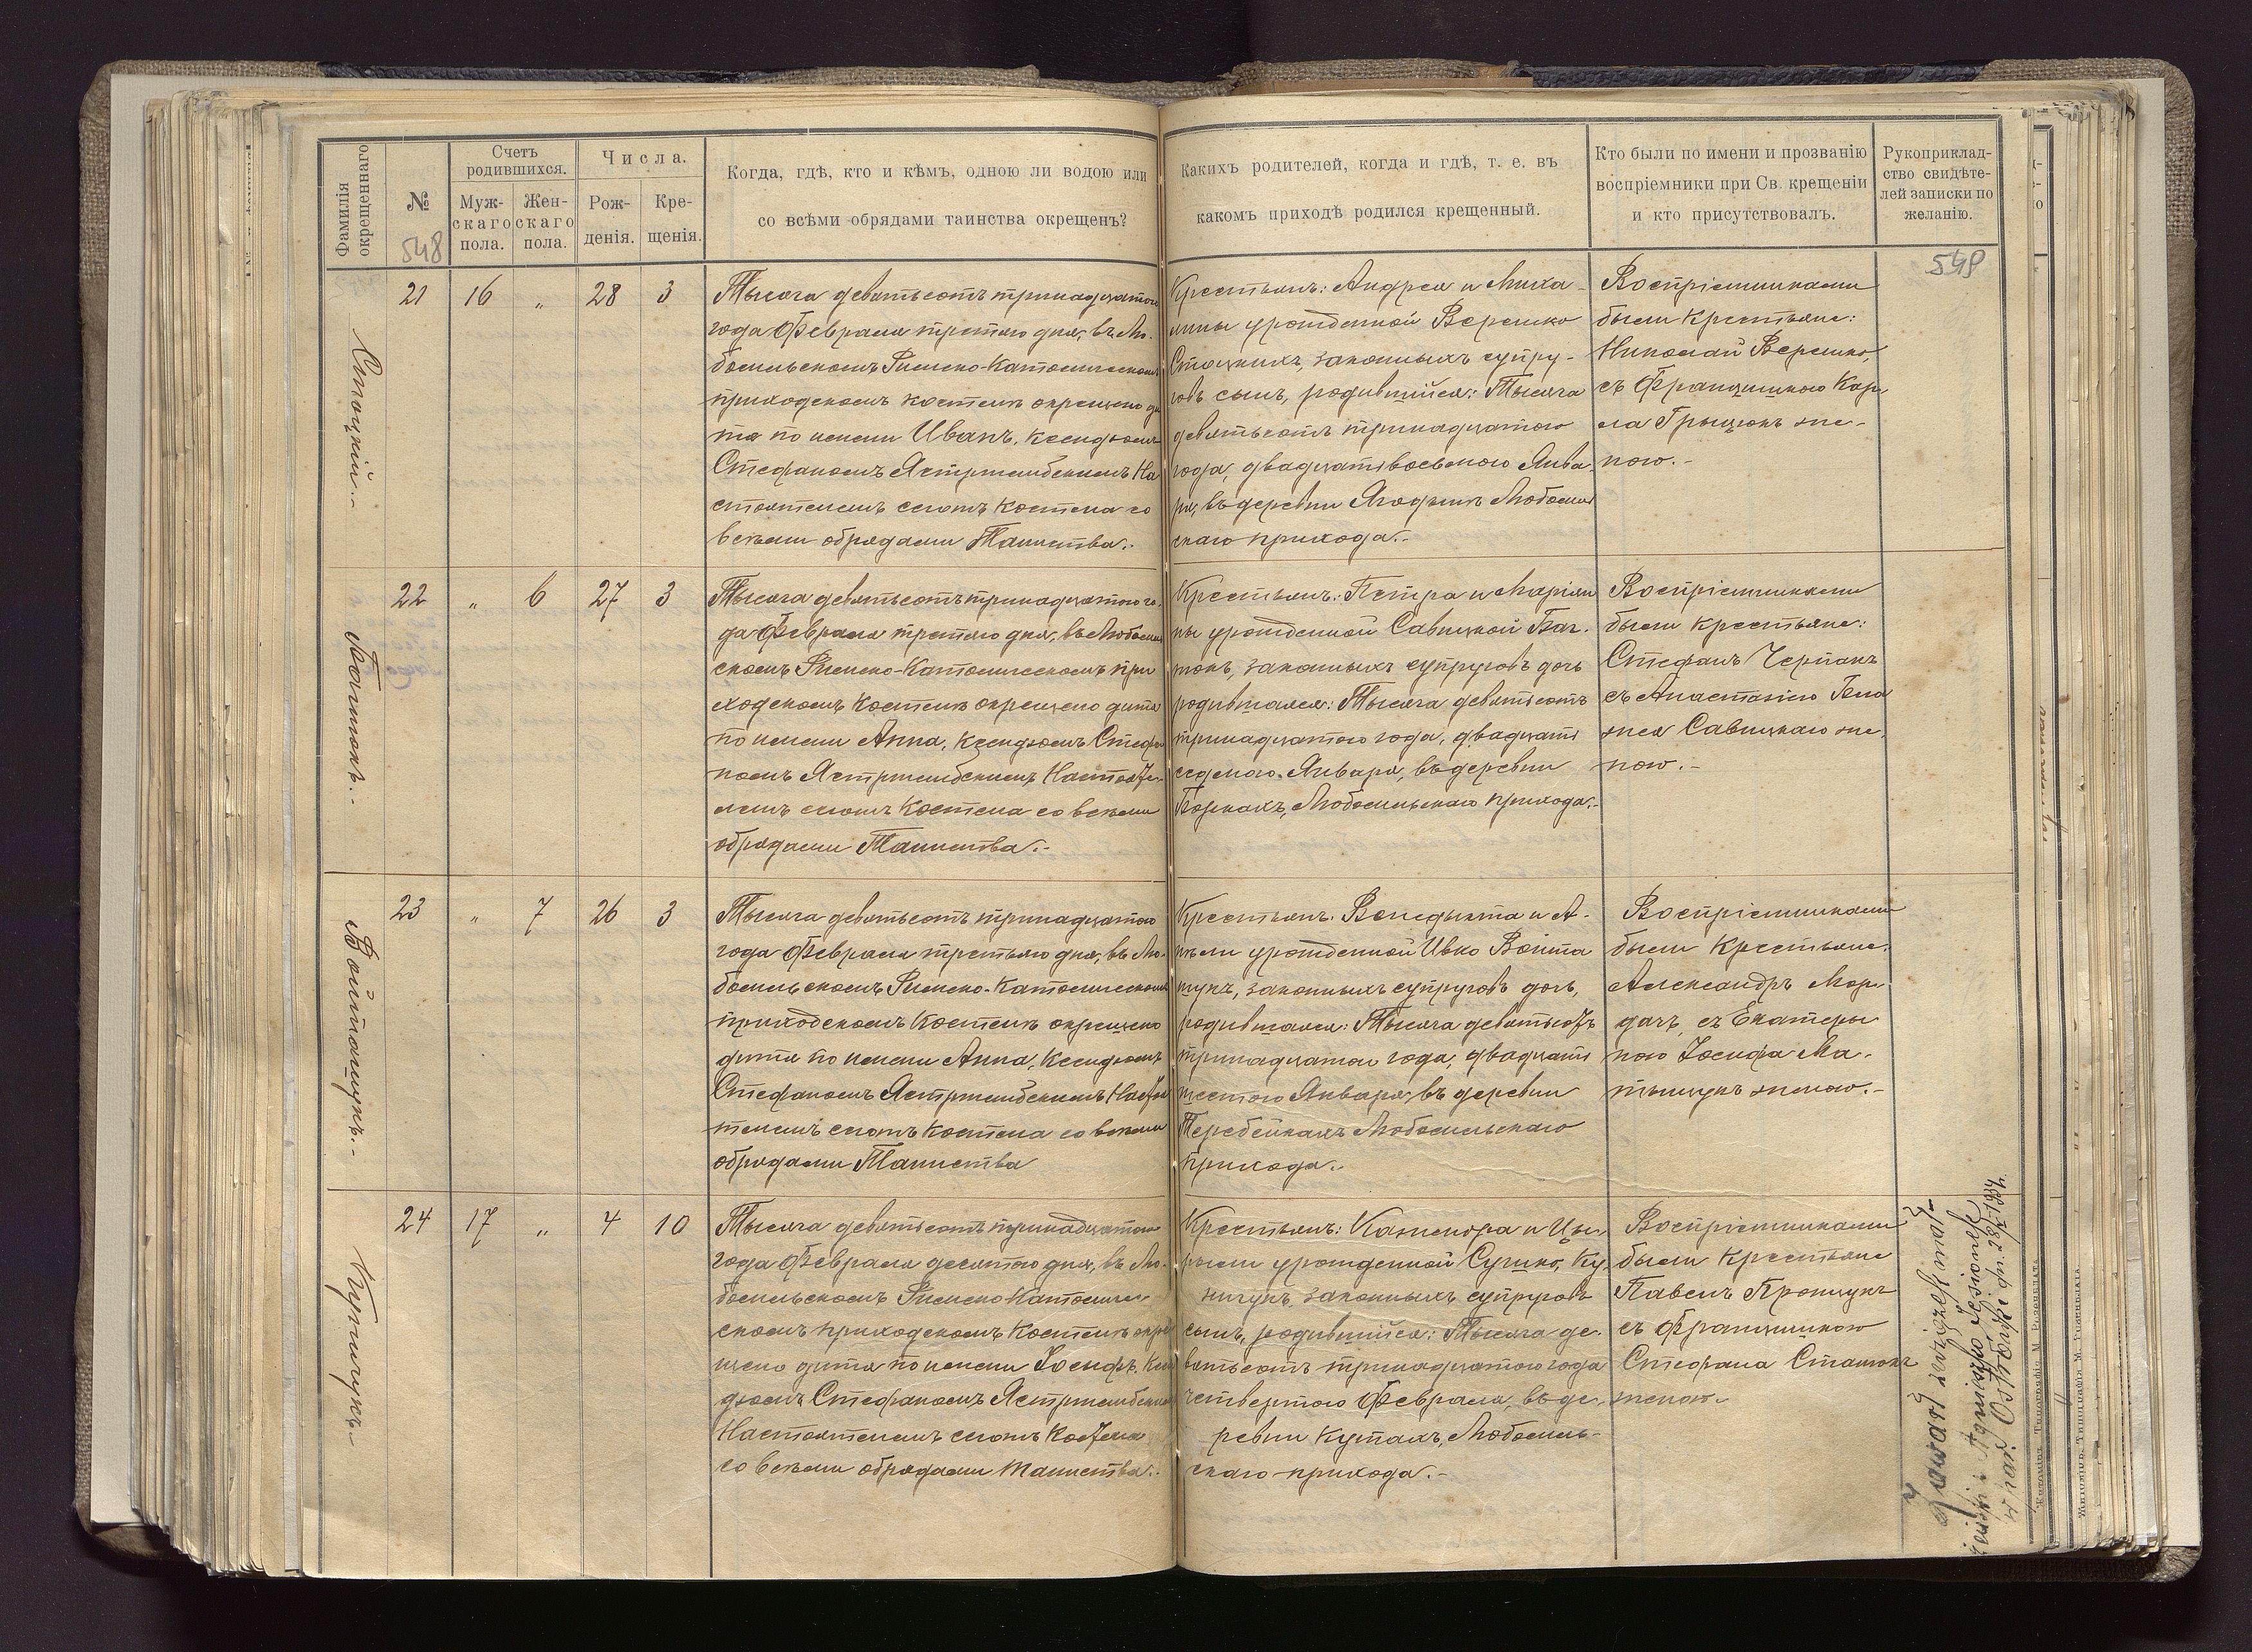 Фамилія окрещеннаго
№
548
Счетъ родившихся.
Муж-
скаго
пола.
Жен-
скаго
пола.
Числа.
Рож-
денія.
Кре-
щенія.
Когда, гдѣ, кто и кѣмъ, одною ли водою или
со всѣми обрядами таинства окрещенъ?
Каких​ъ родителей, когда и гдѣ, т. е. въ
какомъ приходѣ родился крещенный.
Кто были по имени и прозванію
воспріемники при Св. крещеніи
и кто присутствовалъ.
Рукоприклад-
ство свидѣте-
лей записки по
желанію.
549
Стоцкій.-
21 16 „ 28 3
Тысяча девятьсотъ тринадцатого
года Февраля третяго дня, въ Лю-
бомльскомъ Римско-Католическомъ
приходскомъ костелѣ окрещено ди
тя по имени Иванъ, Ксендзомъ
Стефаномъ Ястржембскимъ На
стоятелемъ сегожъ Костела со
всѣми обрядами Таинства.-
Крестьянъ: Андрея и Миха-
лины урожденной Верешко
Стоцкихъ, законныхъ супру-
говъ сынъ, родившійся: Тысяча
девятьсотъ тринадцатого
года, двадцатьвосьмого Янва-
ря, въ деревни Ягодинѣ Любомль
скаго прихода.-
Воспріемниками
были Крестьяне:
Николай Верешко,
съ Францишкою Кар-
ла Грыцюкъ же-
ною.-
22 „ 6 27 3
Тысяча девятьсотъ тринадцатого го-
да Февраля третяго дня, въ Любомль
скомъ Римско-Католическомъ при
ходскомъ Костелѣ окрещено дитя
по имени Анна, Ксендзомъ Стефа
номъ Ястржембскимъ Настояте-
лемъ сегожъ Костела со всѣми
обрядами Таинства.-
Крестьянъ: Петра и Марiян
ны урожденной Савицкой
законныхъ супруговъ дочь
родившаяся: Тысяча девятьсотъ
тринадцатого года, двадцать
седмого Января, въ деревни
Боркахъ, Любомльскаго прихода.-
Воспріемниками
были крестьяне:
Стефанъ Черпакъ
съ Анастазіею
Савицкаго же-
ною.-
Войташукъ.-
23 „ 7 26 3
Тысяча девятьсотъ тринадцатого
года Февраля третьяго дня, въ Лю-
бомльскомъ Римско-Католическомъ
приходскомъ Костелѣ окрещено
дитя по имени Анна, Ксендзомъ
Стефаномъ Ястржембскимъ Настоя
телемъ сегожъ Костела со всѣми
обрядами Таинства
Крестьянъ: Венедыкта и А-
нѣли урожденной Ивко Войта
шукъ, законныхъ супруговъ дочь,
родившаяся: Тысяча девятьсотъ
тринадцатого года, двадцать
шестого Января, въ деревни
Теребейкахъ Любомльскаго
прихода.-
Воспріемниками
были Крестьяне:
Александръ Мор-
дачъ, съ Екатеры
ною Іосифа Ма-
тыщукъ женою.-
24 17 „ 4 10
Тысяча девятьсотъ тринадцатого
года Февраля десятого дня, въ Лю-
бомльскомъ Римско Католиче-
скомъ приходскомъ Костелѣ окре
щено дитя по имени Іосифъ, Ксен
дзомъ Стефаномъ Ястржембским
Настоятелемъ сегожъ Костела
со всѣми обрядами Таинства.-
Крестьянъ: Казимѣра и Цы-
рыли урожденной Сушко,
законныхъ супруговъ
сынъ, родившійся: Тысяча де-
вятьсотъ тринадцатого года
четвертого Февраля, въ де-
ревни Кутахъ, Любомль-
скаго прихода.-
Воспріемниками
были Крестьяне
Павелъ
съ Францишкою
Стефана
женою.-
Zawarł związek małż.